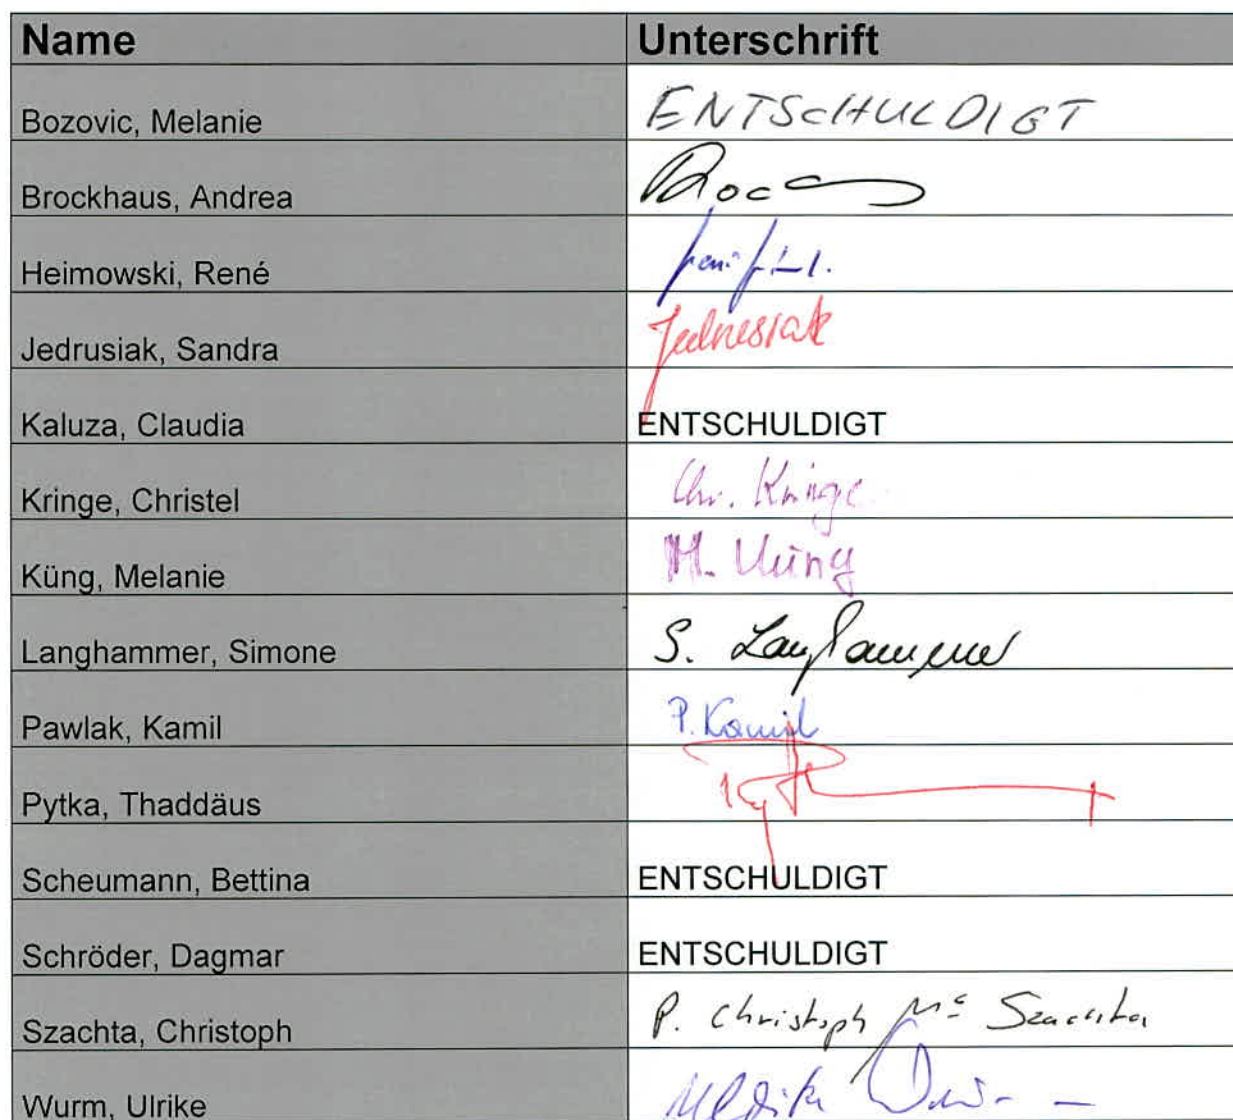 Name Unterschrift
Bozovic, Melanie ENTSCHULDIGT
Brockhaus, Andrea
Heimowski, René
Jedrusiak, Sandra Jedrusiak
Kaluza, Claudia ENTSCHULDIGT
Kringe, Christel Chr. Kringe
Küng, Melanie M. Küng
Langhammer, Simone S. Langhammer
Pawlak, Kamil P. Kamil
Pytka, Thaddäus
Scheumann, Bettina ENTSCHULDIGT
Schröder, Dagmar ENTSCHULDIGT
Szachta, Christoph P. Christoph Szachta
Wurm, Ulrike Ulrike